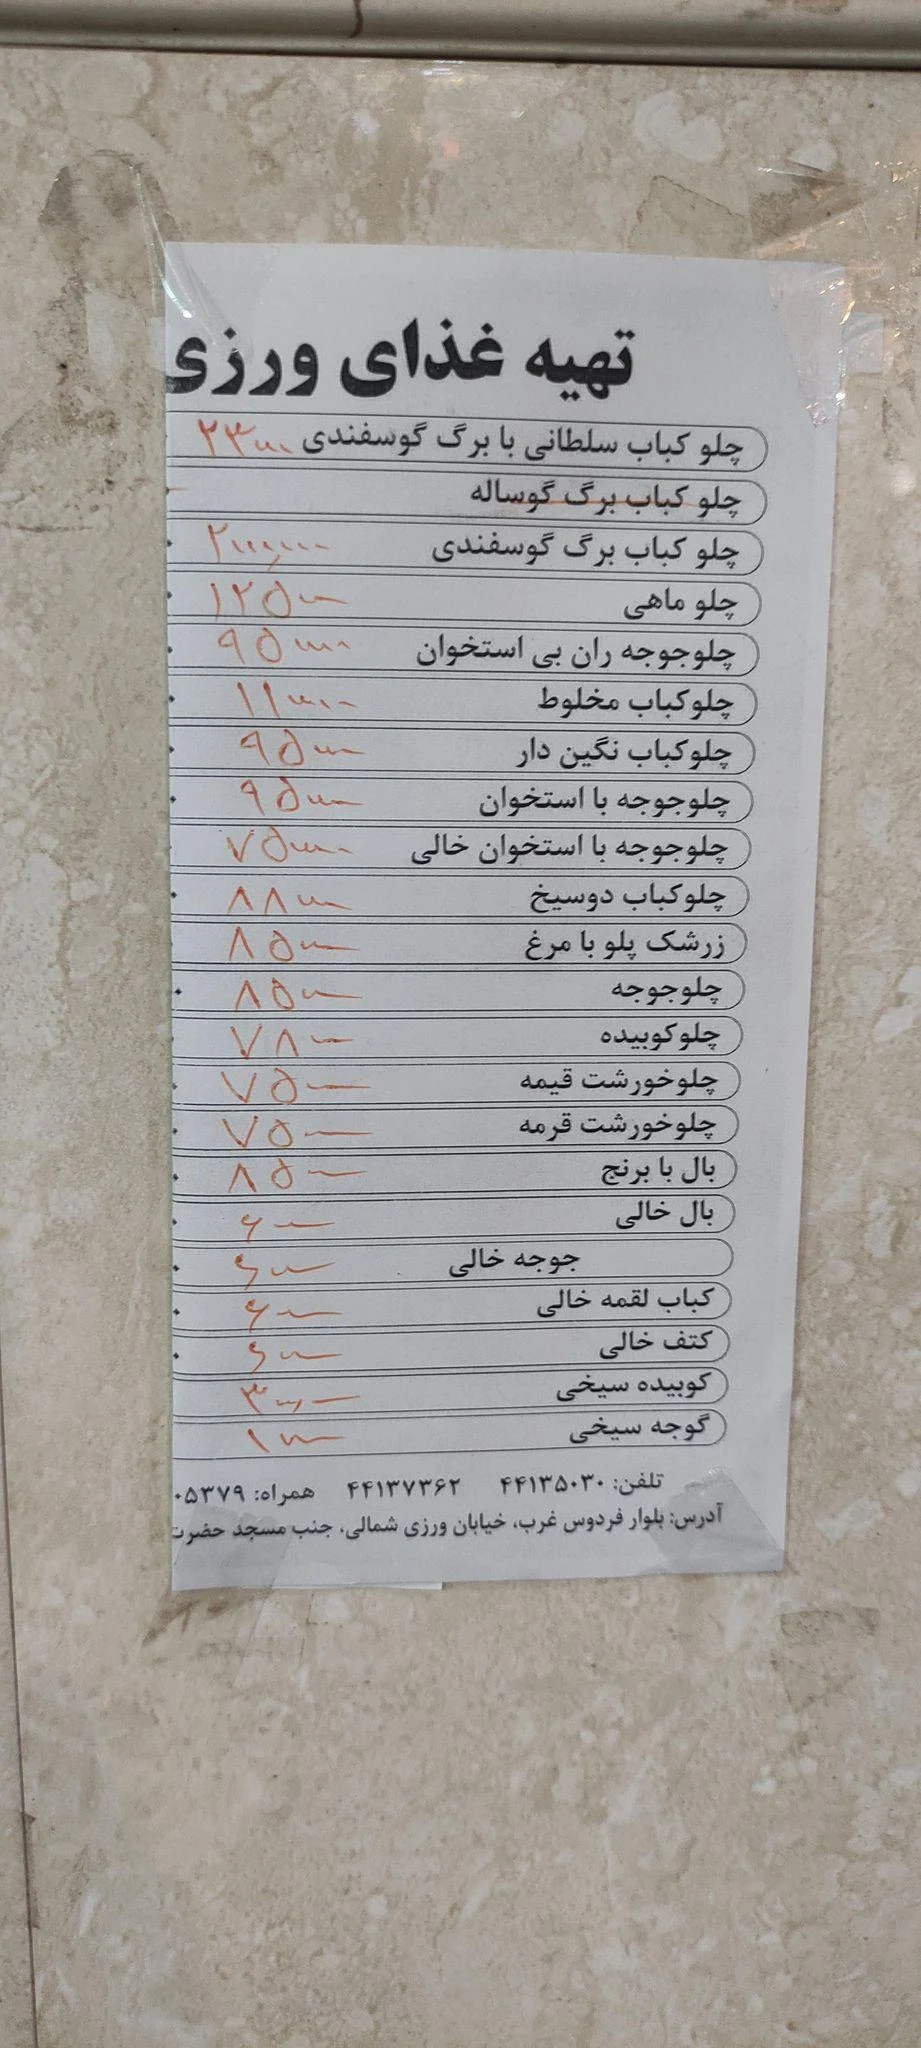 تهیه غذای ورزی
چلو کباب سلطانی با برگ گوسفندی ۲۳۰۰۰۰
چلو کباب برگ گوساله
چلو کباب برگ گوسفندی ۲۰۰,۰۰۰
چلو ماهی ۱۲۵۰۰۰
چلوجوجه ران بی استخوان ۹۵۰۰۰
چلوکباب مخلوط ۱۱۰۰۰۰
چلوکباب نگین دار ۹۵۰۰۰
چلوجوجه با استخوان ۹۵۰۰۰
چلوجوجه با استخوان خالی ۷۵۰۰۰
چلوکباب دوسیخ ۸۸۰۰۰
زرشک پلو با مرغ ۸۵۰۰۰
چلوجوجه ۸۵۰۰۰
چلوکوبیده ۷۸۰۰۰
چلوخورشت قیمه ۷۵۰۰۰
چلوخورشت قرمه ۷۵۰۰۰
بال با برنج ۸۵۰۰۰
بال خالی ۶۰۰۰۰
جوجه خالی ۶۰۰۰۰
کباب لقمه خالی ۶۰۰۰۰
کتف خالی ۶۰۰۰۰
کوبیده سیخی ۳۰۰۰۰
گوجه سیخی ۱۰۰۰۰
تلفن: ۴۴۱۳۵۰۳۰ ۴۴۱۳۷۳۶۲ همراه: ۰۵۳۷۹
آدرس: بلوار فردوس غرب، خیابان ورزی شمالی، جنب مسجد حضرت